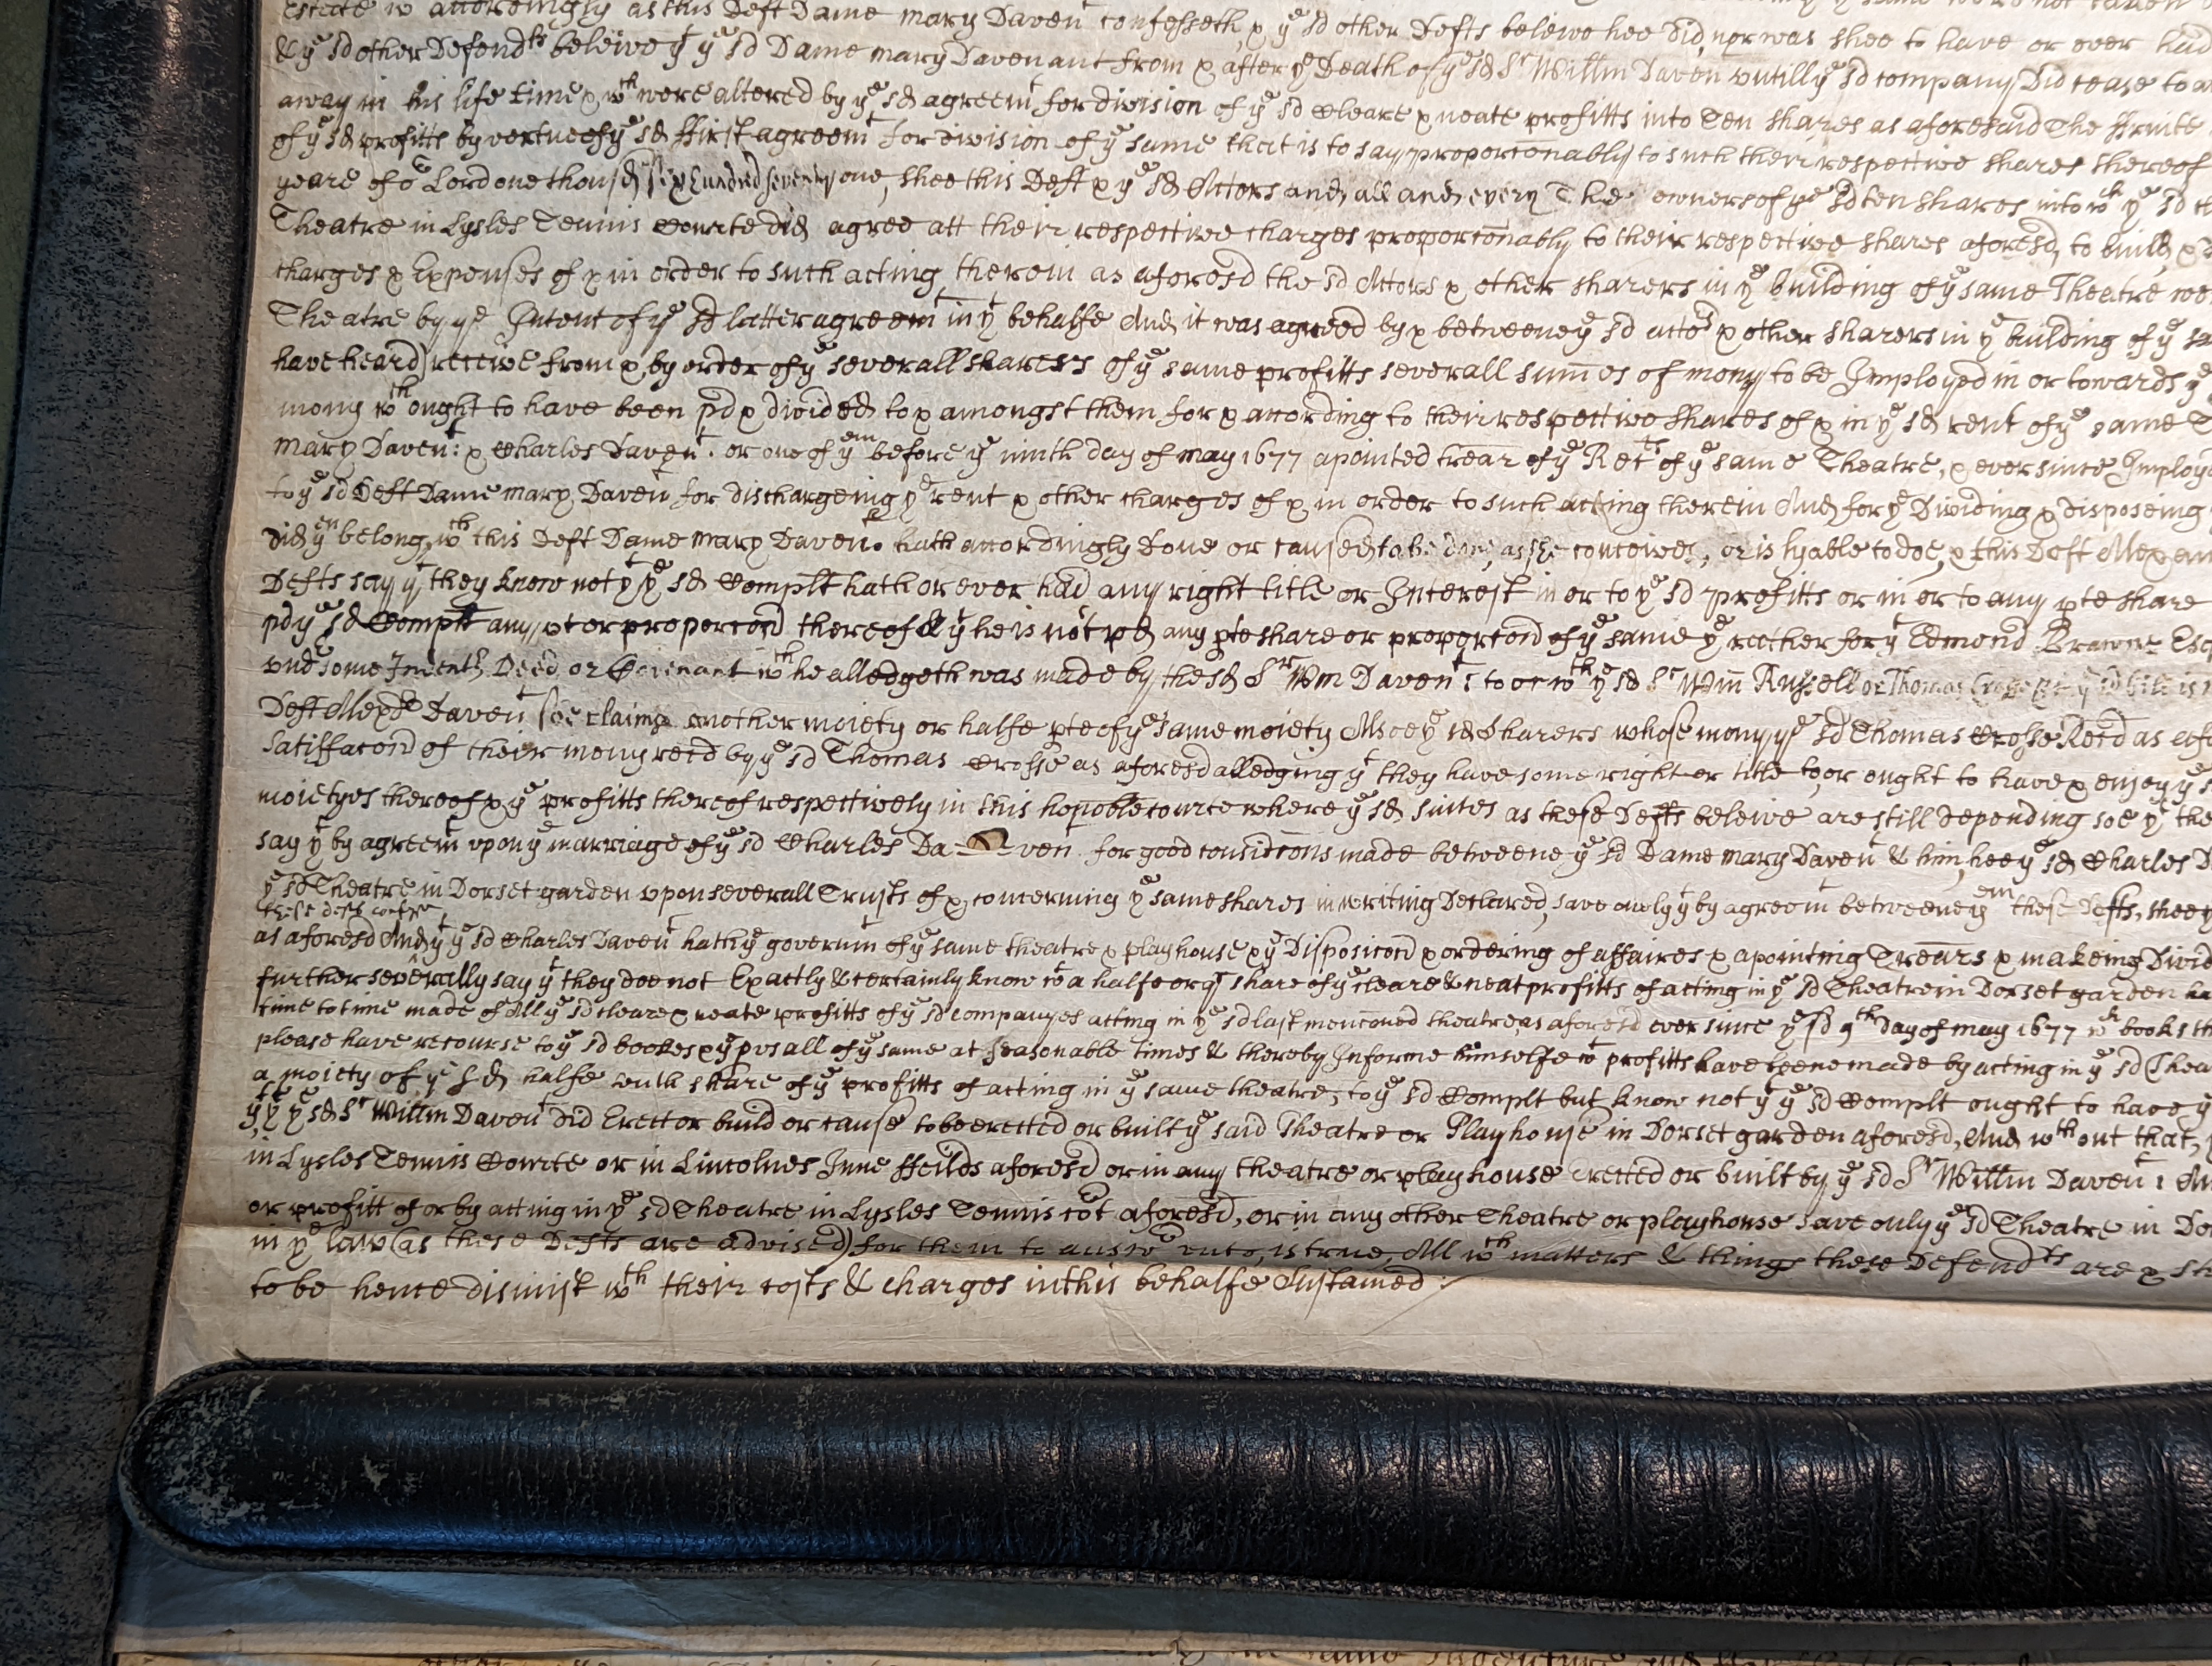 Estate w accordingly as this Deft Dame mary Daven^t confesseth, & y^e sd other Defts beleive hee did, nor was shee to have or ever had
& y^e sd other Defend^ts beleive y^t y^e sd Dame mary Davenant from & after y^e Death of y^e sd S^r Willm Daven^t vntill y^e sd company Did cease to
away in his life time & w^ch were altered by y^e sd agreem^t for division of y^e sd Cleare & neate profitts into Ten shares as aforesaid The ffruite
of y^e sd profitts by vertue of y^e sd ffirst agreem^t for division of y^e same that is to say proporconably to such their respective shares thereof
yeare of o^r Lord one thousd six hundred seventy one, shee this Deft & y^e sd Actors and all and every The owners of y^e sd ten shares into w^ch y^e sd
Theatre in Lysles Tennis Courte did agree att their respective charges proporconably to their respective shares aforesd, to build, &
charges & Expenses of & in order to such acting therein as aforesd the sd Actors & other sharers in y^e building of y^e same Theatre
Theatre by y^e Intent of y^e sd latter agreem^t in y^t behalfe And it was agreed by & betweene y^e sd acto^rs & other sharers in y^e building of y^e
have heard) receive from & by order of y^e severall sharers of y^e same profitts severall summes of mony to be Imployed in or towards y^e
mony w^ch ought to have been pd & divided to & amongst them for & according to their respective shares of & in y^e sd rent of y^e same
mary Daven^t: & Charles Daven^t. or one of y^em before y^e ninth day of may 1677 apointed trear of y^e Rec^ts of y^e same Theatre, & ever since
to y^e sd Deft Dame mary Daven^t for dischargeing y^e rent & other charges of & in order to such acting therein And for y^e Dividing & disposeing
did y^en belong, w^ch this Deft Dame mary Daven^t hath accordingly done or caused to be done, as she conceives, or is lyable to doe, & this Deft
Defts say y^t they know not y^t y^e sd Complt hath or ever had any right title or Interest in or to y^e sd profitts or in or to any pte share
pd y^e sd Complt any pt or proporcon thereof & y^t he is not pd any pte share or proporcon of y^e same y^e rather for y^t Edmond Browne
vnd^r some Indent^r Deed or Covenant w^ch he alledgeth was made by the sd S^r Wm Daven^t: to or w^th y^e sd S^r Wm Russell or Thomas
Deft Alexd^r Daven^t claims another moiety or halfe pte of y^e same moiety Alsoe y^e sd sharers whose mony y^e sd Thomas Crosse Recd as
satiffacon of their mony recd by y^e sd Thomas Crosse as aforesd alledging y^t they have some right or title to, or ought to have & enjoy y^e
moietyes thereof & y^e profitts thereof respectively in this honoble courte where y^e sd suites as these Defts beleive are still depending soe y^t
say y^t by agreem^t vpon y^e marriage of y^e sd Charles Da = = ven^t. for good considcons made betweene y^e sd Dame mary Daven^t & him, hee y^e sd Charles
y^e sd Theatre in Dorset garden vpon severall Trusts of & concerning y^e same shares in writing Declared, save onely y^t by agreem^t betweene y^em these Defts,
these defts confess
as aforesd And y^t y^e sd Charles Daven^t hath y^e governm^t of y^e same theatre & playhouse & y^e Disposicon & ordering of affaires & apointing Trears & makeing
further severally say y^t they doe not Exactly & certainly know w^t a halfe or q^t share of y^e cleare & neat profitts of acting in y^e sd Theatre in Dorset garden
time to time made of All y^e sd cleare & neate profitts of y^e sd companyes acting in y^e sd last menconed theatre, as aforesd ever since y^e sd 9^th Day of may 1677 w^ch books
please have recourse to y^e sd bookes & y^e prsall of y^e same at seasonable times & thereby Informe himselfe w^t profitts have beene made by acting in y^e sd
a moiety of y^e sd halfe share of y^e profitts of acting in y^e same theatre, to y^e sd Complt but know not y^t y^e sd Complt ought to have
y^t y^e sd S^r Willm Daven^t did Erect or build or cause to be erected or built y^e said Theatre or Playhouse in Dorset garden aforesd, And w^th out that,
in Lysles Tennis Courte or in Lincolnes Inne ffeilds aforesd or in any theatre or playhouse Erected or built by y^e sd S^r Willm Daven^t:
or profitt of or by acting in y^e sd Theatre in Lysles Tennis co^t aforesd, or in any other Theatre or playhouse save only y^e sd Theatre in
in y^e law (as these Defts are advised) for them to answ^r vnto, is true, All w^ch matters & things these Defend^ts are &
to be hence dismist w^th their costs & charges in this behalfe Sustained: